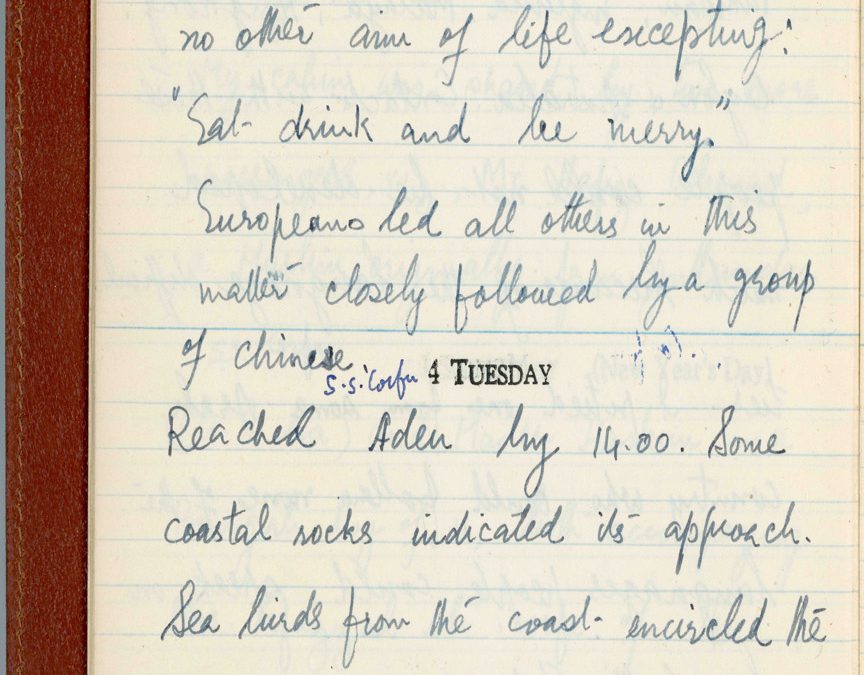 no other aim of life excepting:
"Eat drink and be merry."
Europeans led all others in this
matter closely followed by a group
of chinese.
S.S. 'Corfu 4 TUESDAY
Reached Aden by 14.00. Some
coastal rocks indicated its approach.
Sea birds from the coast encircled the